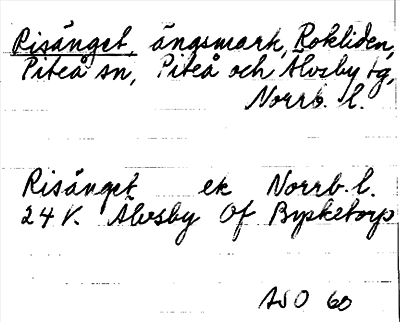 Risänget, ängsmark, Rokliden,
Piteå sn, Piteå och Älvsby tg,
Norrb. l.
Risänget ek Norrb. l.
24 V. Älvsby Of Bysketorp
ASO 60